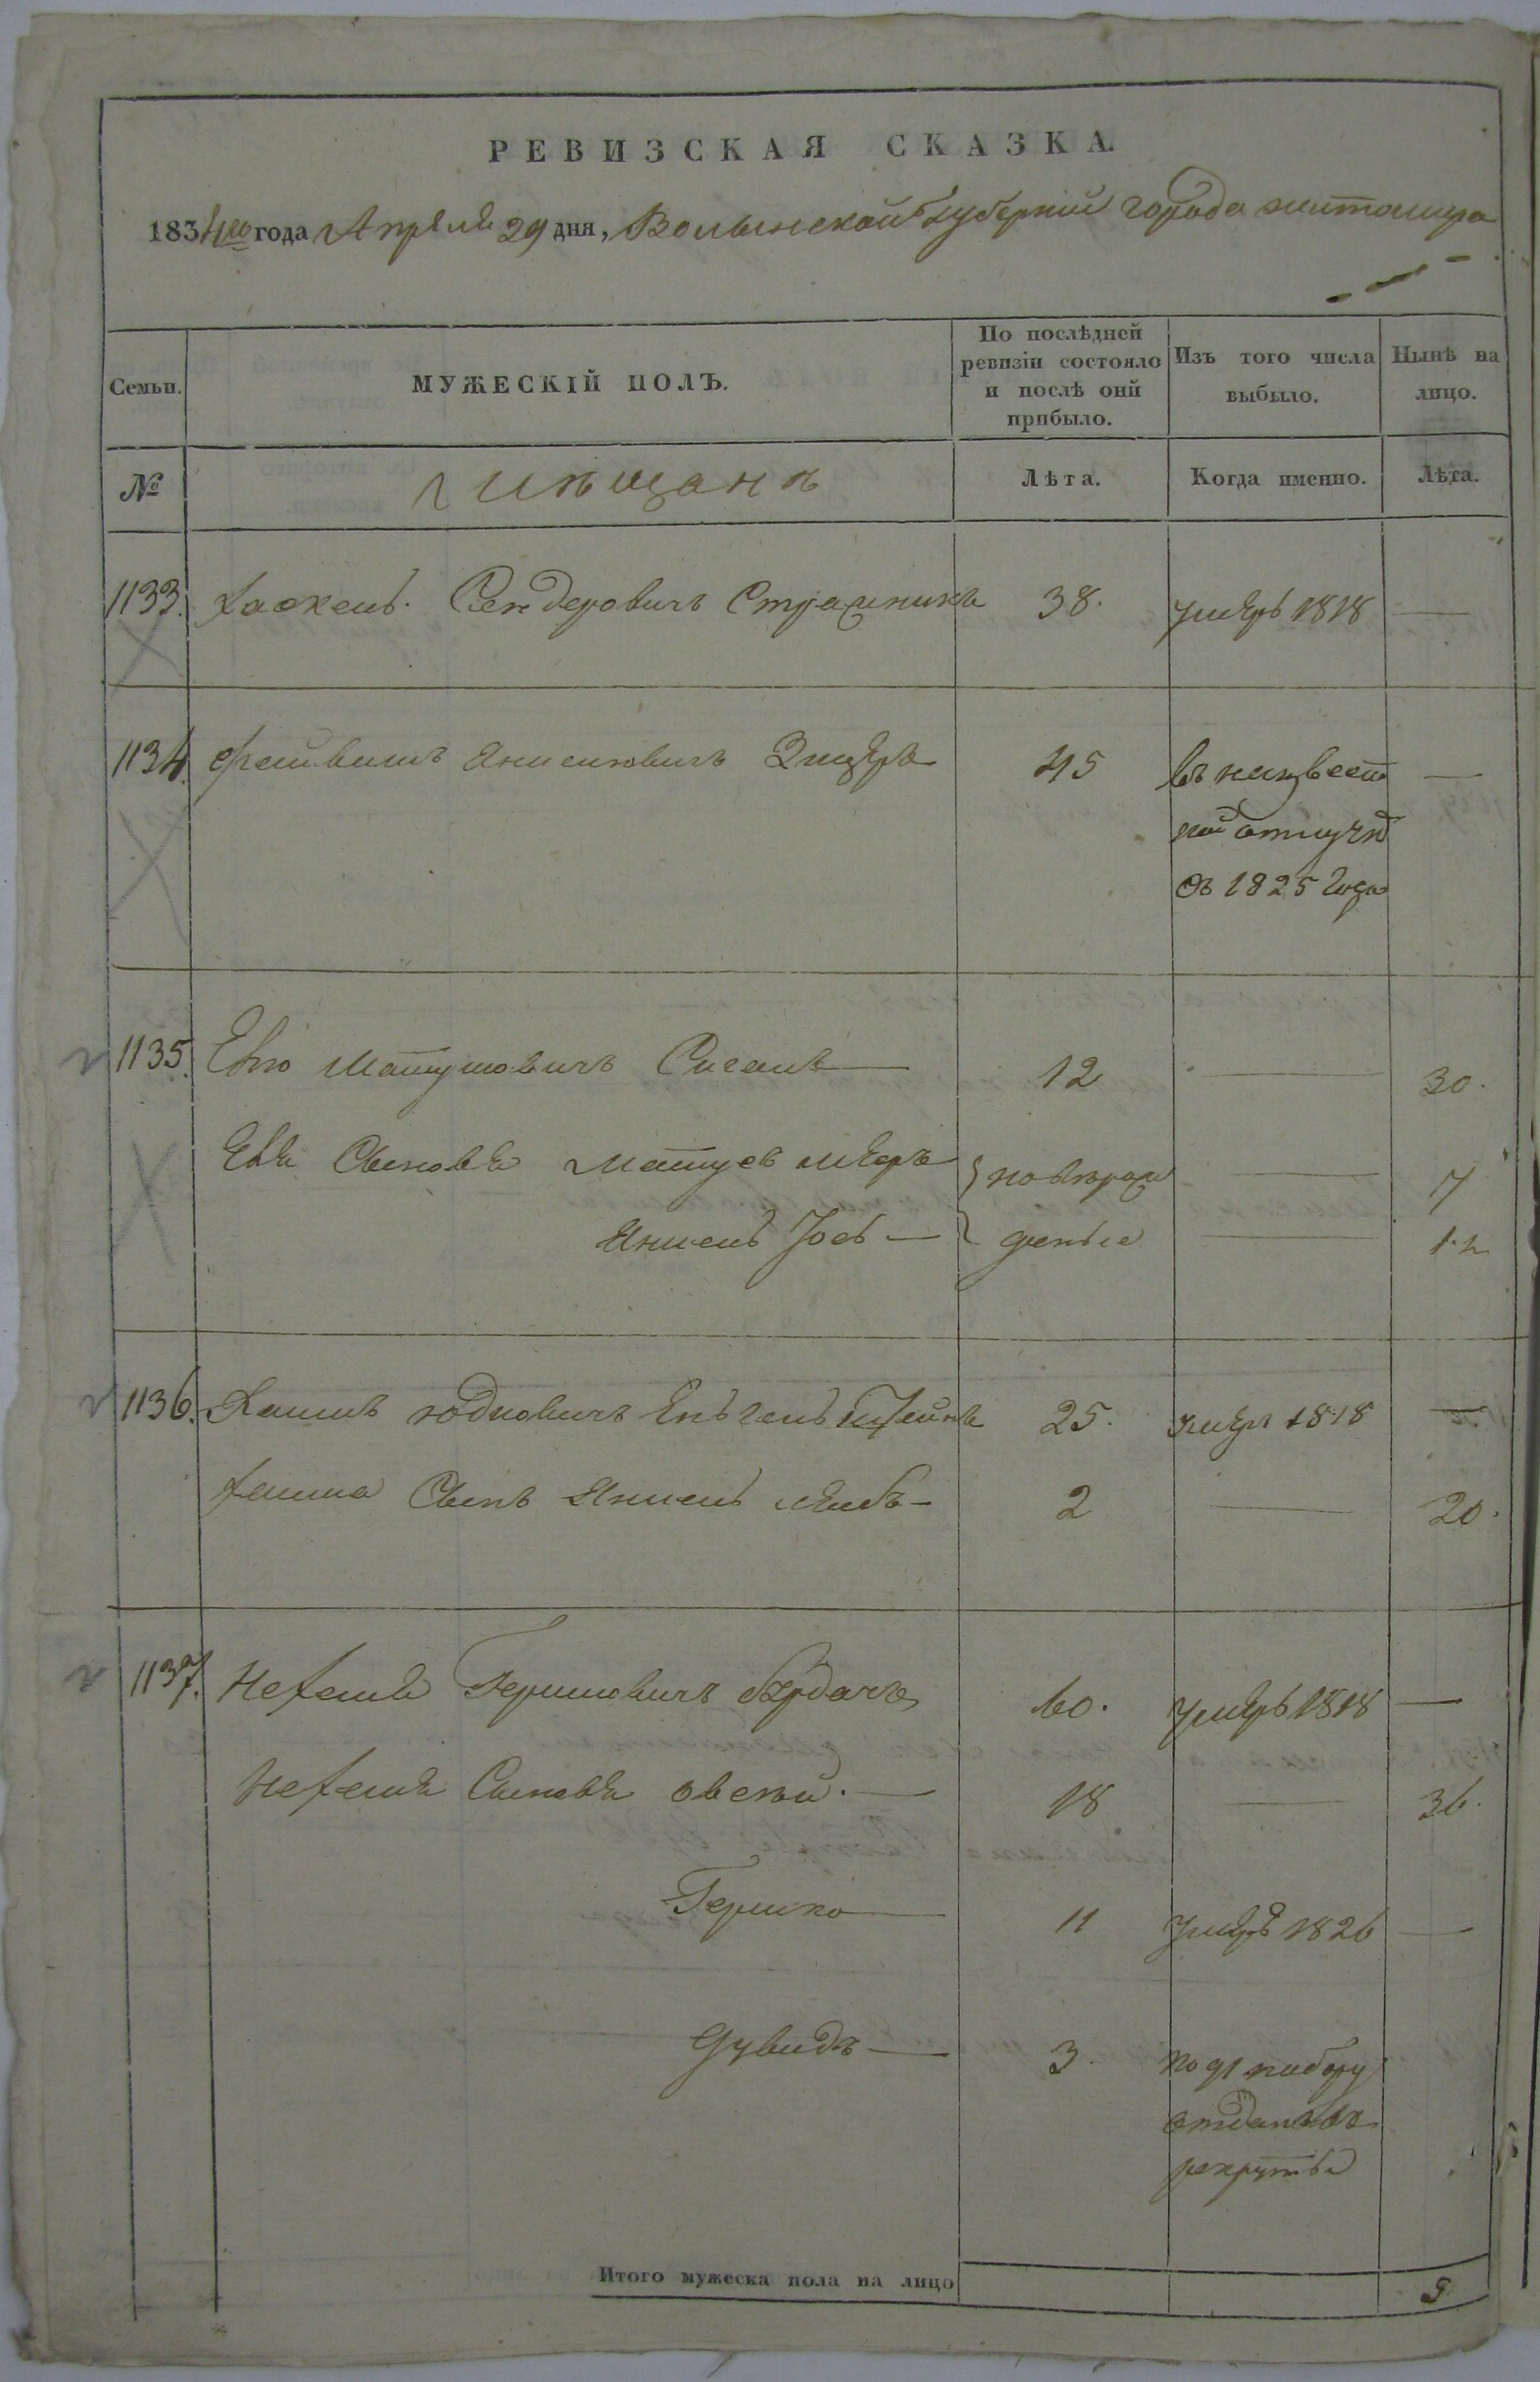 РЕВИЗСКАЯ СКАЗКА.
1834го года Апреля 29 дня, Волынской Губернии города житомира
Семьи. МУЖЕСКІЙ ПОЛЪ. По послѣдней ревизіи состояло и послѣ онй прибыло. Изъ того числа выбыло. Нынѣ на лицо.
№ мѣщанъ Лѣта. Когда именно. Лѣта.
1133. Хаскель Сендеровичъ 38. умеръ 1818 —
1134. Фаивишъ 45 въ неизвест —
ной отлучкѣ
съ 1825 года
1135. Матусовичъ — 12 — 30.
Сыновья мееръ } новорож — 7
Янкель Іось — } деные — 1½
1136. Хаимъ юдковичъ 25. умеръ 1818 —
Хаима Сынъ Янкель лейбъ — 2 — 20.
1137. Нехемія Гершковичъ 60. умеръ 1818 —
Нехемія Сыновья овсей. — 18 — 36.
Гершко — 11 умеръ 1826 —
Дувидъ — 3. по 91 набору
отданъ въ
рекруты
Итого мужеска пола на лицо 5